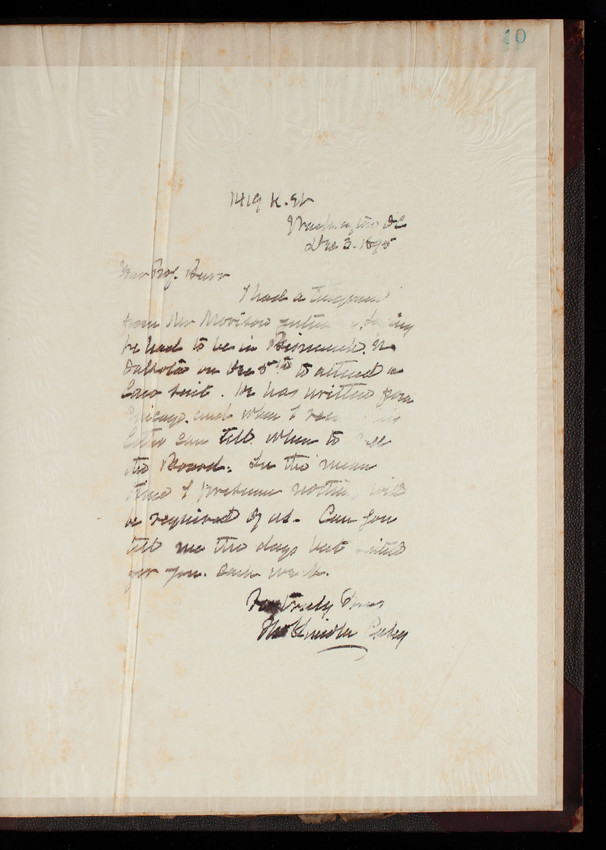 10
1419 K. St
Washington DC
Dec 3. 1895
Dear Prof. Burr
I had a telegram
from Mr Morison saying
he had to be in Bismarck. N.
Dakota on Dec 5th to attend a
Law suit. He has written from
Chicago. and when I
letter can tell when to call
the Board. In the mean
time I presume nothing will
be required of us. Can you
tell me the days best suited
for you. each week.
Very truly Yours
Thos Lincoln Casey